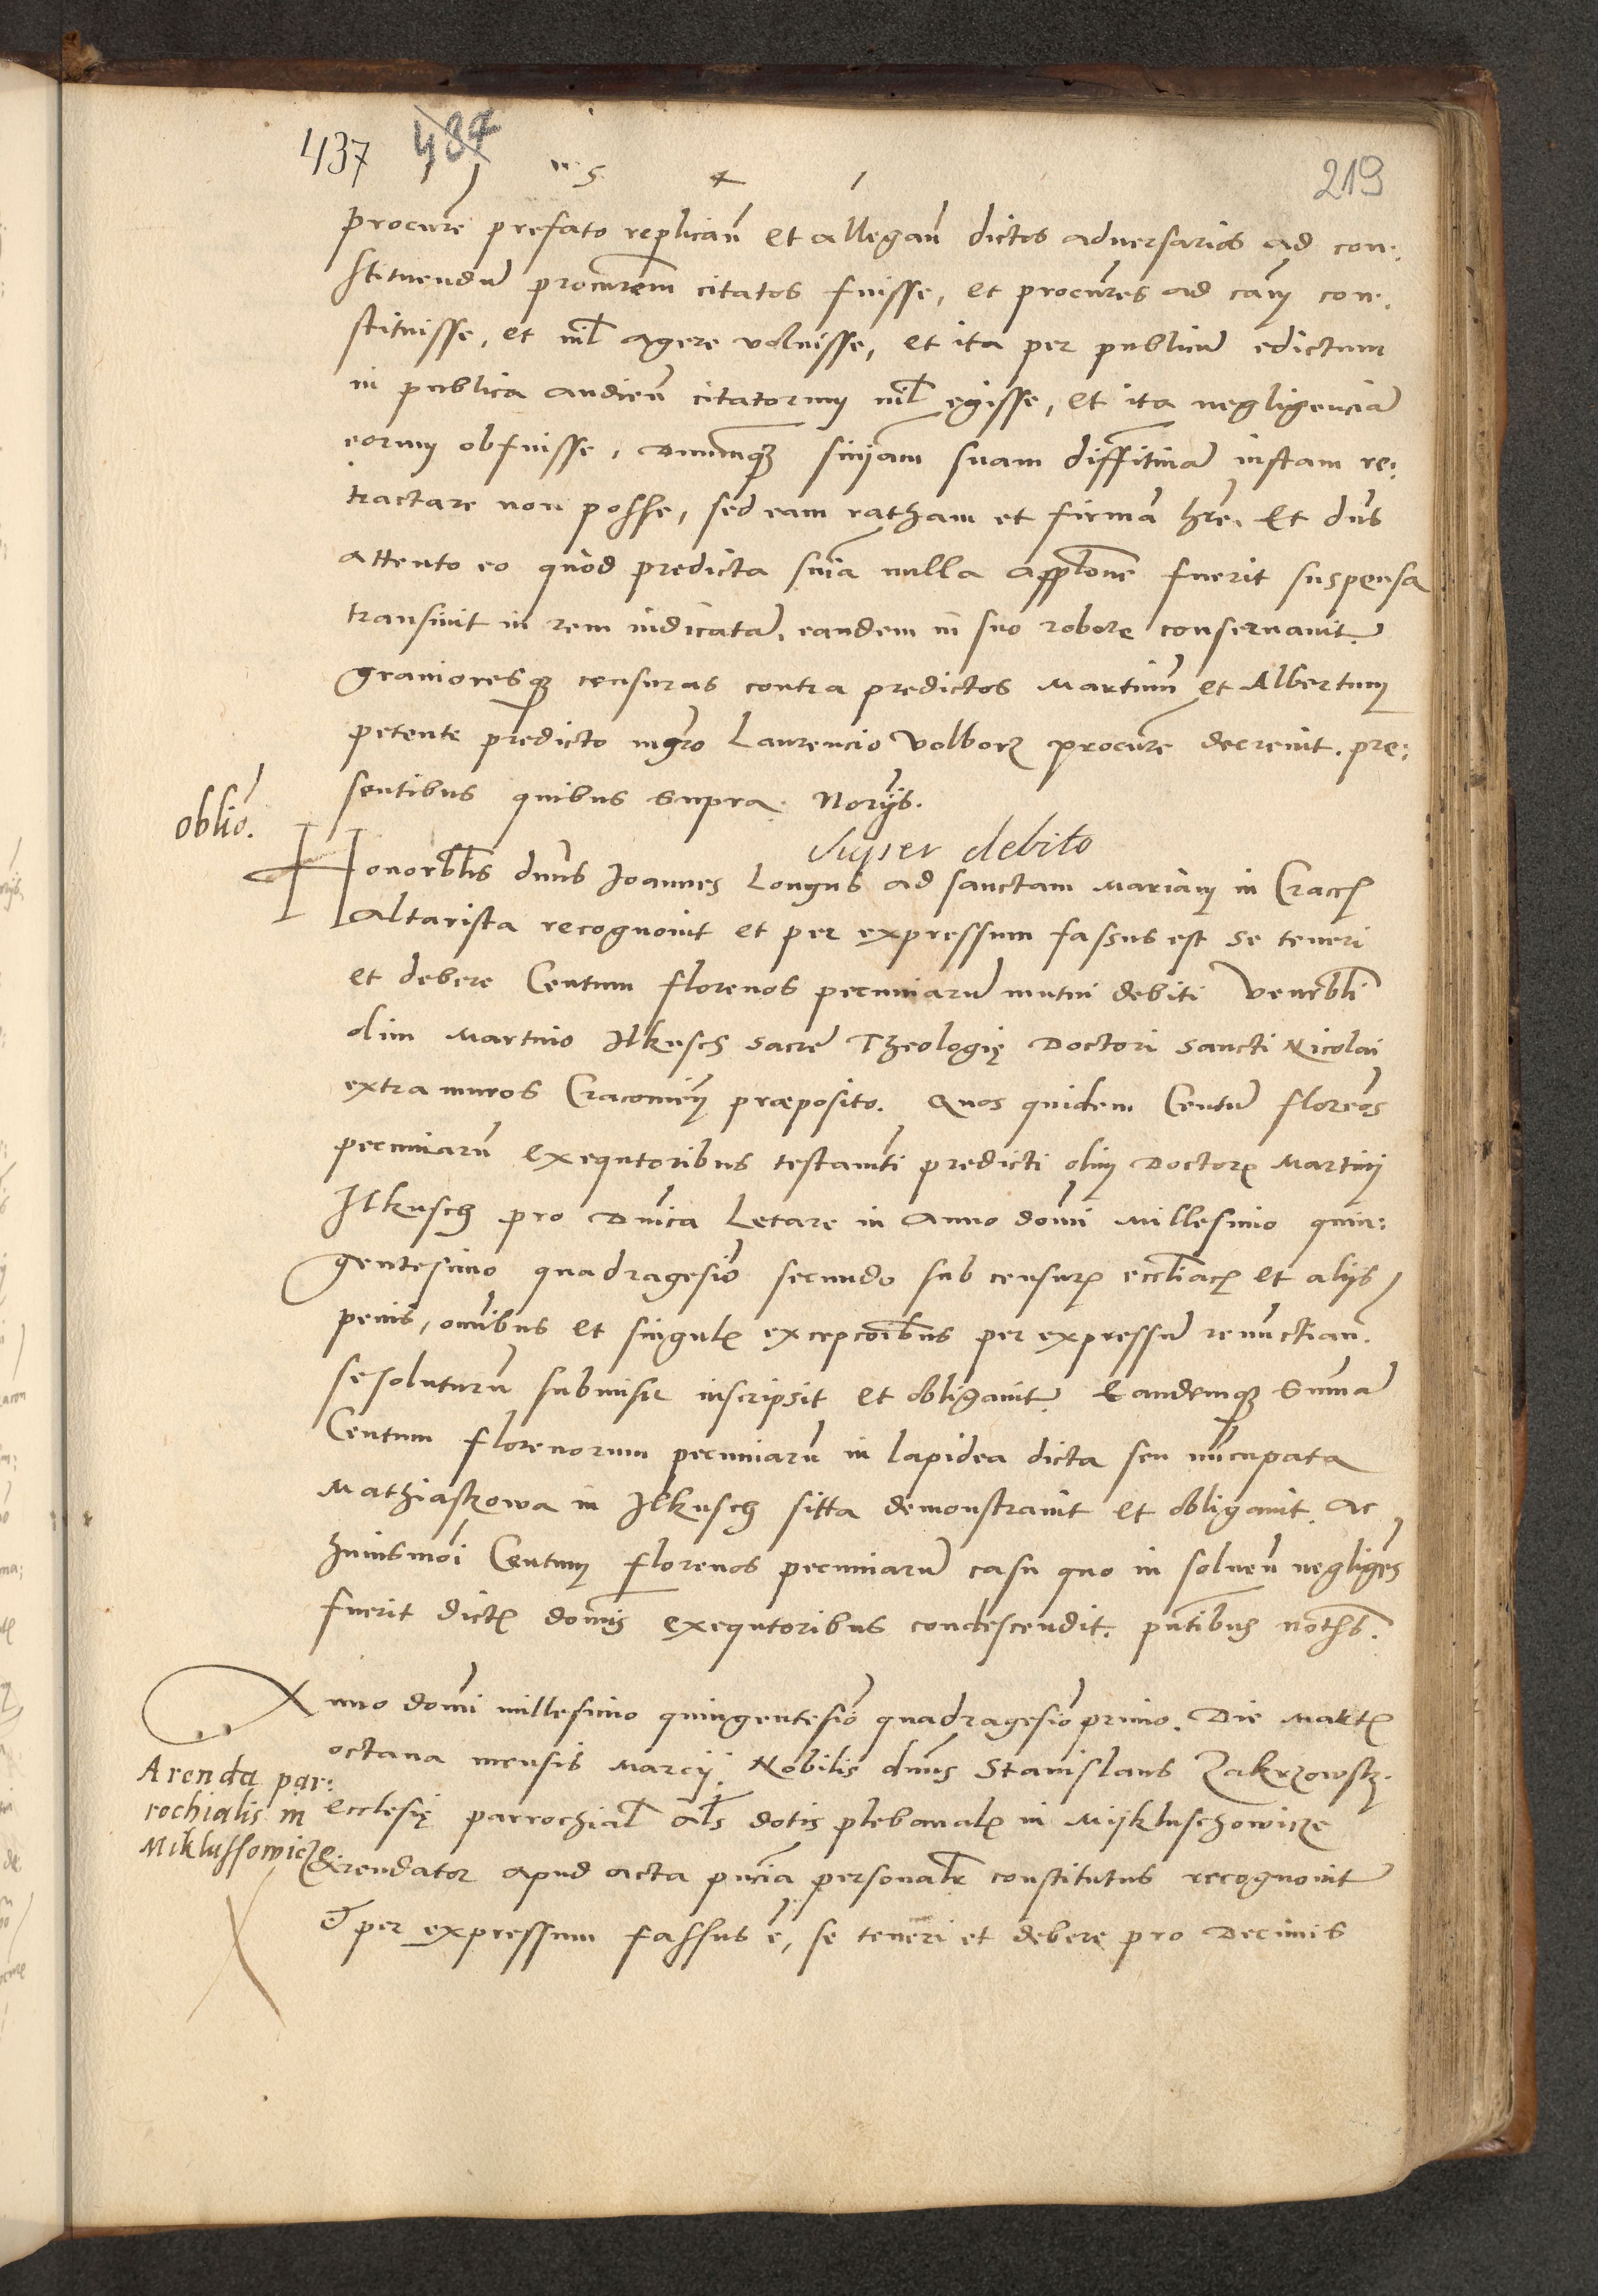 437 437
219
procure prefato replican et allegan dictos adversarios ad con:
stituendum procurem citatos fuisse, et procures ad cam con:
stituisse, et nil agere voluisse, et ita per publicum edictum
in publica audien citatorum nil egisse, et ita negligenciam
eorum obfuisse, Dnumque sniam suam diffitivam iustam re:
tractare non posse, sed eam ratham et firmam hre. Et dns
attento eo quod predicta snia nulla applone fuerit suspensa
transivit in rem iudicatam. eandem in suo robore conservavit.
gravioresque censuras contra predictos Martinum et Albertum
petente predicto mgro Laurencio Volborz procure decrevit. pre:
sentibus quibus supra. Noriis.
oblio.
super debito
Honorblis dnus Joannes Longus ad sanctam Mariam in Crac
Altarista recognovit et per expressum fassus est se teneri
et debere Centum florenos pecuniarum mutui debiti Venerbli
olim Martino Ilkusch sacre Theologię Doctori Sancti Nicolai
extra muros Cracovien præposito. Quos quidem Centum florenos
pecuniarum exequtoribus testamti predicti olim Doctoris Martini
Ilkusch pro Dnica Letare in Anno domi Millesimo quin:
gentesimo quadragesio secundo sub censuris eccliacis et aliis
penis, omibus et singulis excepcoibus per expressum renuctian.
se soluturum submisit inscripsit et obligavit. Eandemque summam
Centum florenorum pecuniarum in lapidea dicta seu nuncupata
Mathiaskowa in Ilkusch sitta demonstravit et obligavit. ac
huiusmoi Centum florenos pecuniarum casu quo in solven negligens
fuerit dictis domis exequtoribus condescendit. pntibus noths.
Anno domi millesimo quingentesio quadragesio primo. Die Martis
octava mensis Marcii. Nobilis dnus Stanislaus Zakrzowsky.
Arenda par:
rochialis in
Miklussowicze
ecclesię parrochial als dotis plebanalis in Mykluschowicze
Arendator apud acta pncia personalr constitutus recognovit
Et per expressum fassus e, se teneri et debere pro Decimis